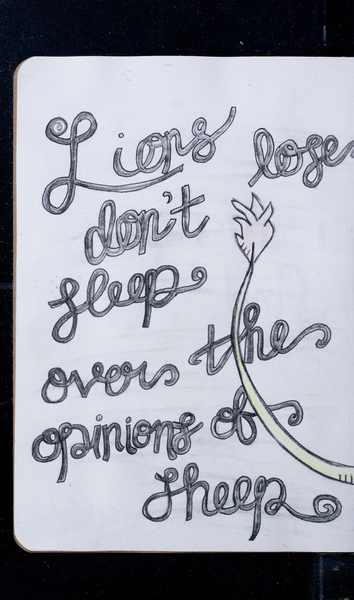 Lions lose
don't
sleep
over
the
opinions of
sheep